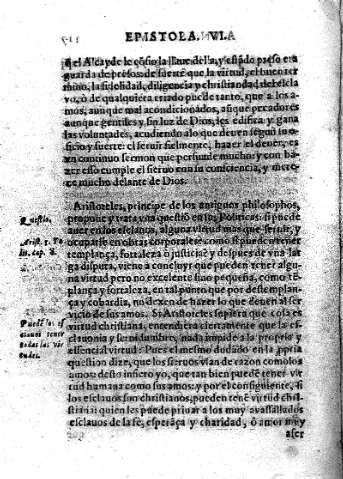 EPISTOLA.
q̃ el Alcayde le cõfio la llaue della, y estãdo preso era
guarda de presos: de suerte que la virtud, el buen ter
mino, la fidelidad, diligencia y christiandad del escla
vo, ò de qualquiera criado puede tanto, que à los a-
mos, aunque mal acondicionados, aũque pecadores
aunque gentiles y sin luz de Dios, les edifica y gana
las voluntades, acudiendo alo que deuen segun su o-
ficio y suerte: el seruir fielmente, hazer el deuer, es
vn continuo sermon que persuade mucho: y con ha-
zer esso cumple el sieruo con su consciencia, y mere-
ce mucho delante de Dios.
Aristoteles, principe de los antiguos philosophos,
propone y trata vna questiõ en los Politicas: si puede
auer en los esclauos, alguna virtud mas que seruir, y
ocuparse en obras corporales: como si pueden tener
templança, fortaleza ò justicia: y despues de vna lar
ga disputa, viene a concluyr que pueden tener algu-
na virtud pero no excelente sino pequeña, como tẽ-
plança y fortaleza, en tal punto que por destemplan-
ça y cobardia, no dexen de hazer lo que deuen al ser
vicio de sus amos. Si Aristoteles supiera que cosa es
virtud christiana, entendiera ciertamente que la es-
clauonia y seruidumbre, nada impide a la propria y
essencial virtud: Pues el mesmo dudado en la ꝓpria
question dize, que los sieruos vsan de razon como los
amos: desto infiero yo, que tan bien puedẽ tener vir
tud humana como sus amos: y por el consiguiente, si
los esclauos son christianos, pueden tenẽ virtud chri
stiana: quien les puede priuar a los muy auassallados
esclauos de la fe, esperãça y charidad, ò amor muy
aser
Questio.
Arist. 1. Po
lit. cap.
Puedẽ los es
clauos tener
todas las vir
tudes.